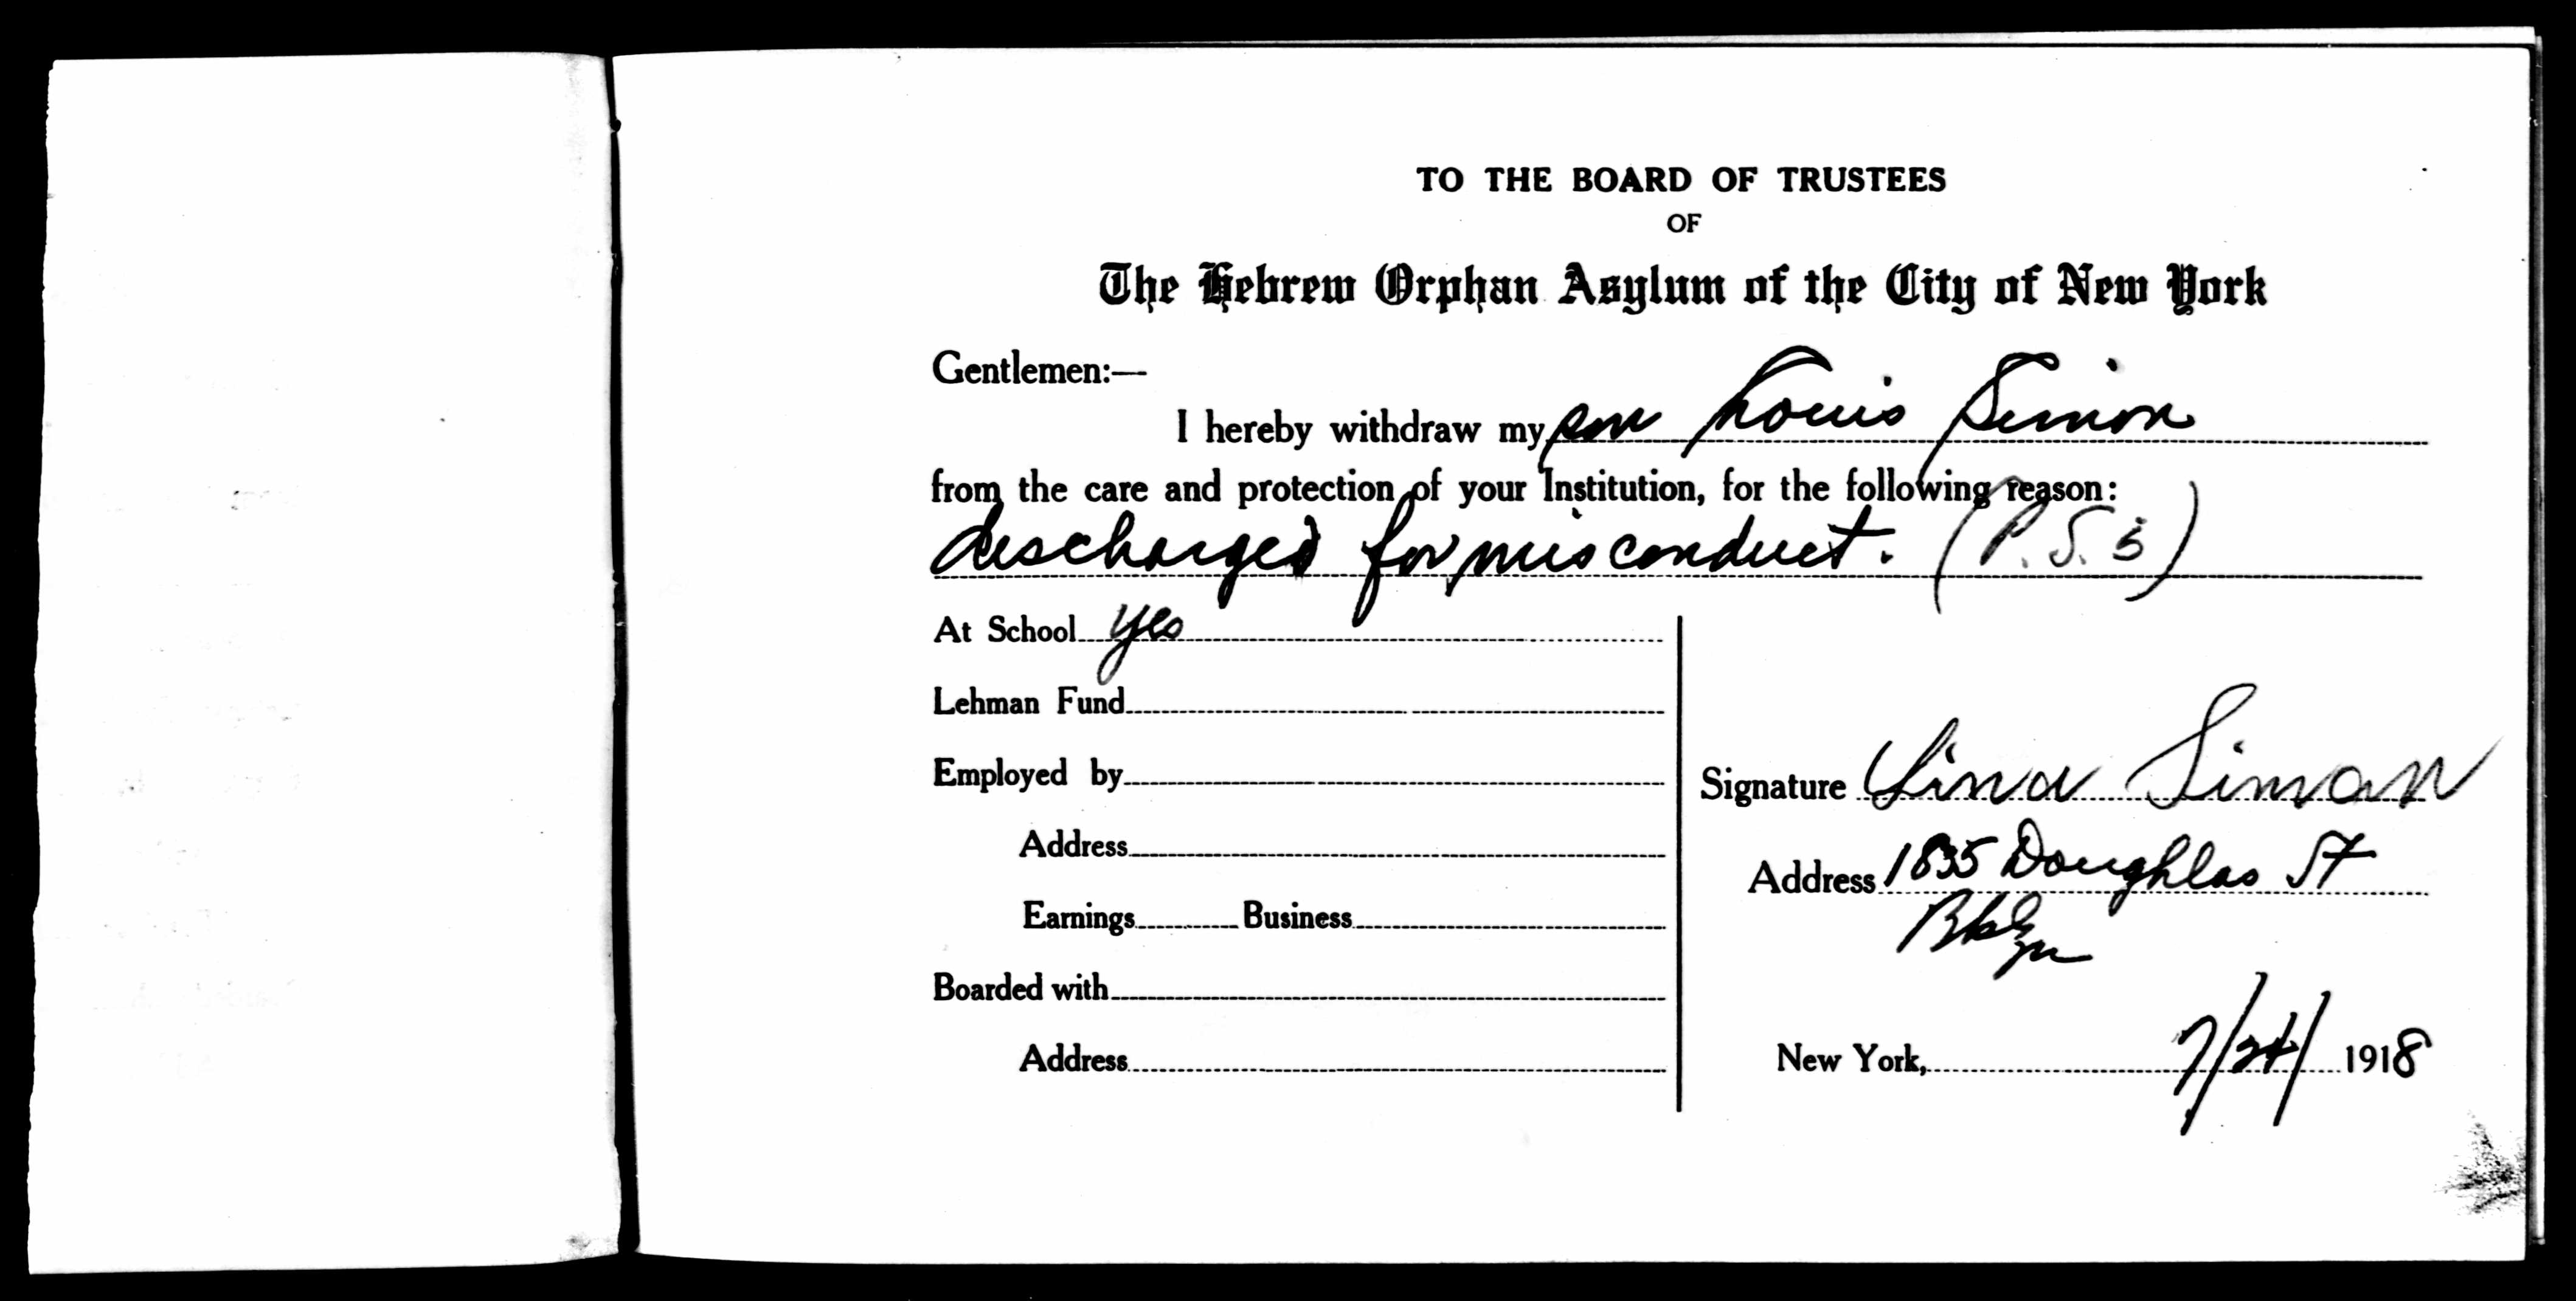 TO THE BOARD OF TRUSTEES
OF
The Hebrew Orphan Asylum of the City of New York
Gentlemen:—
I hereby withdraw my son Louis Simon
from the care and protection of your Institution, for the following reason:
discharged for misconduct. (P.S. 5)
At School yes
Lehman Fund
Employed by
Address
Earnings Business
Boarded with
Address
Signature Lina Simon
Address 1835 Doughlas St
Bklyn
New York, 7/24/ 1918